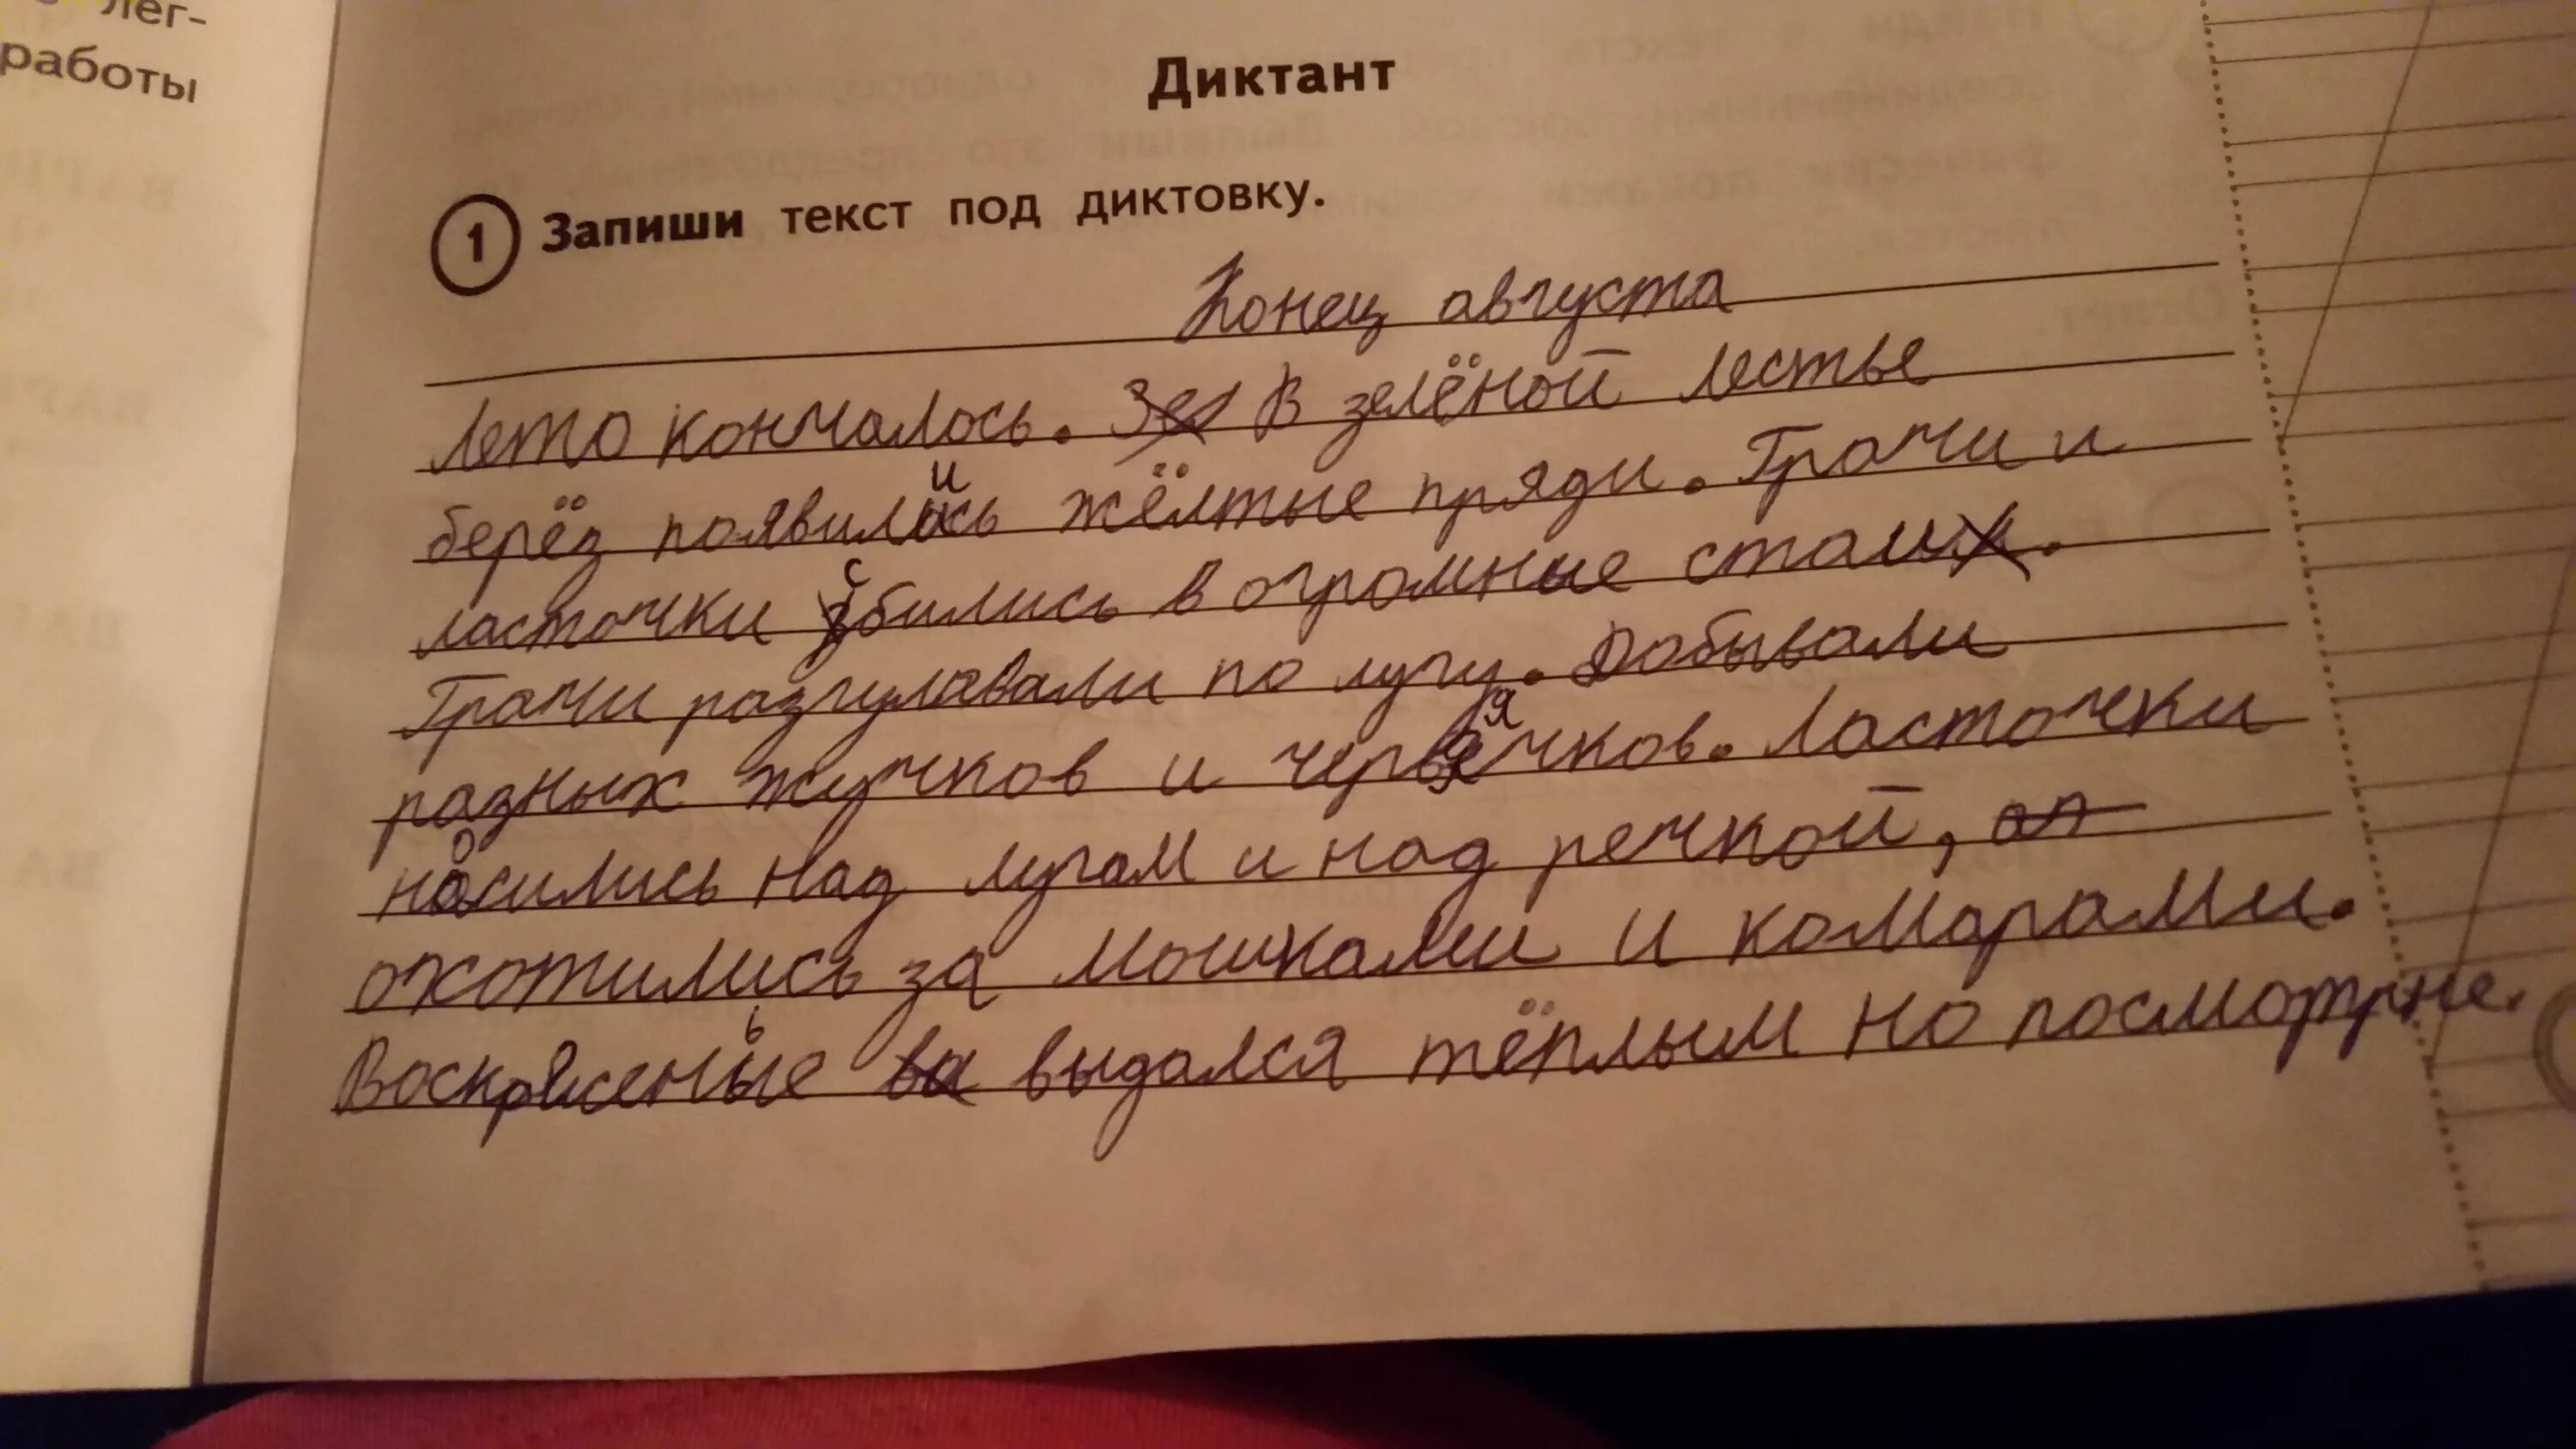 лег-
работы
Диктант
1 Запиши текст под диктовку.
Конец августа
Лето кончалось. Зел В зелёной лестье
берёз появились жёлтые пряди. Грачи и
ласточки сбились в огромные стаи.
Грачи разгулавали по лугу. Добывали
разных жучков и червячков. Ласточки
носились над лугом и над речкой, оп
охотились за мошками и комарами.
Воскрясенье ва выдался тёплым но посмотрне.